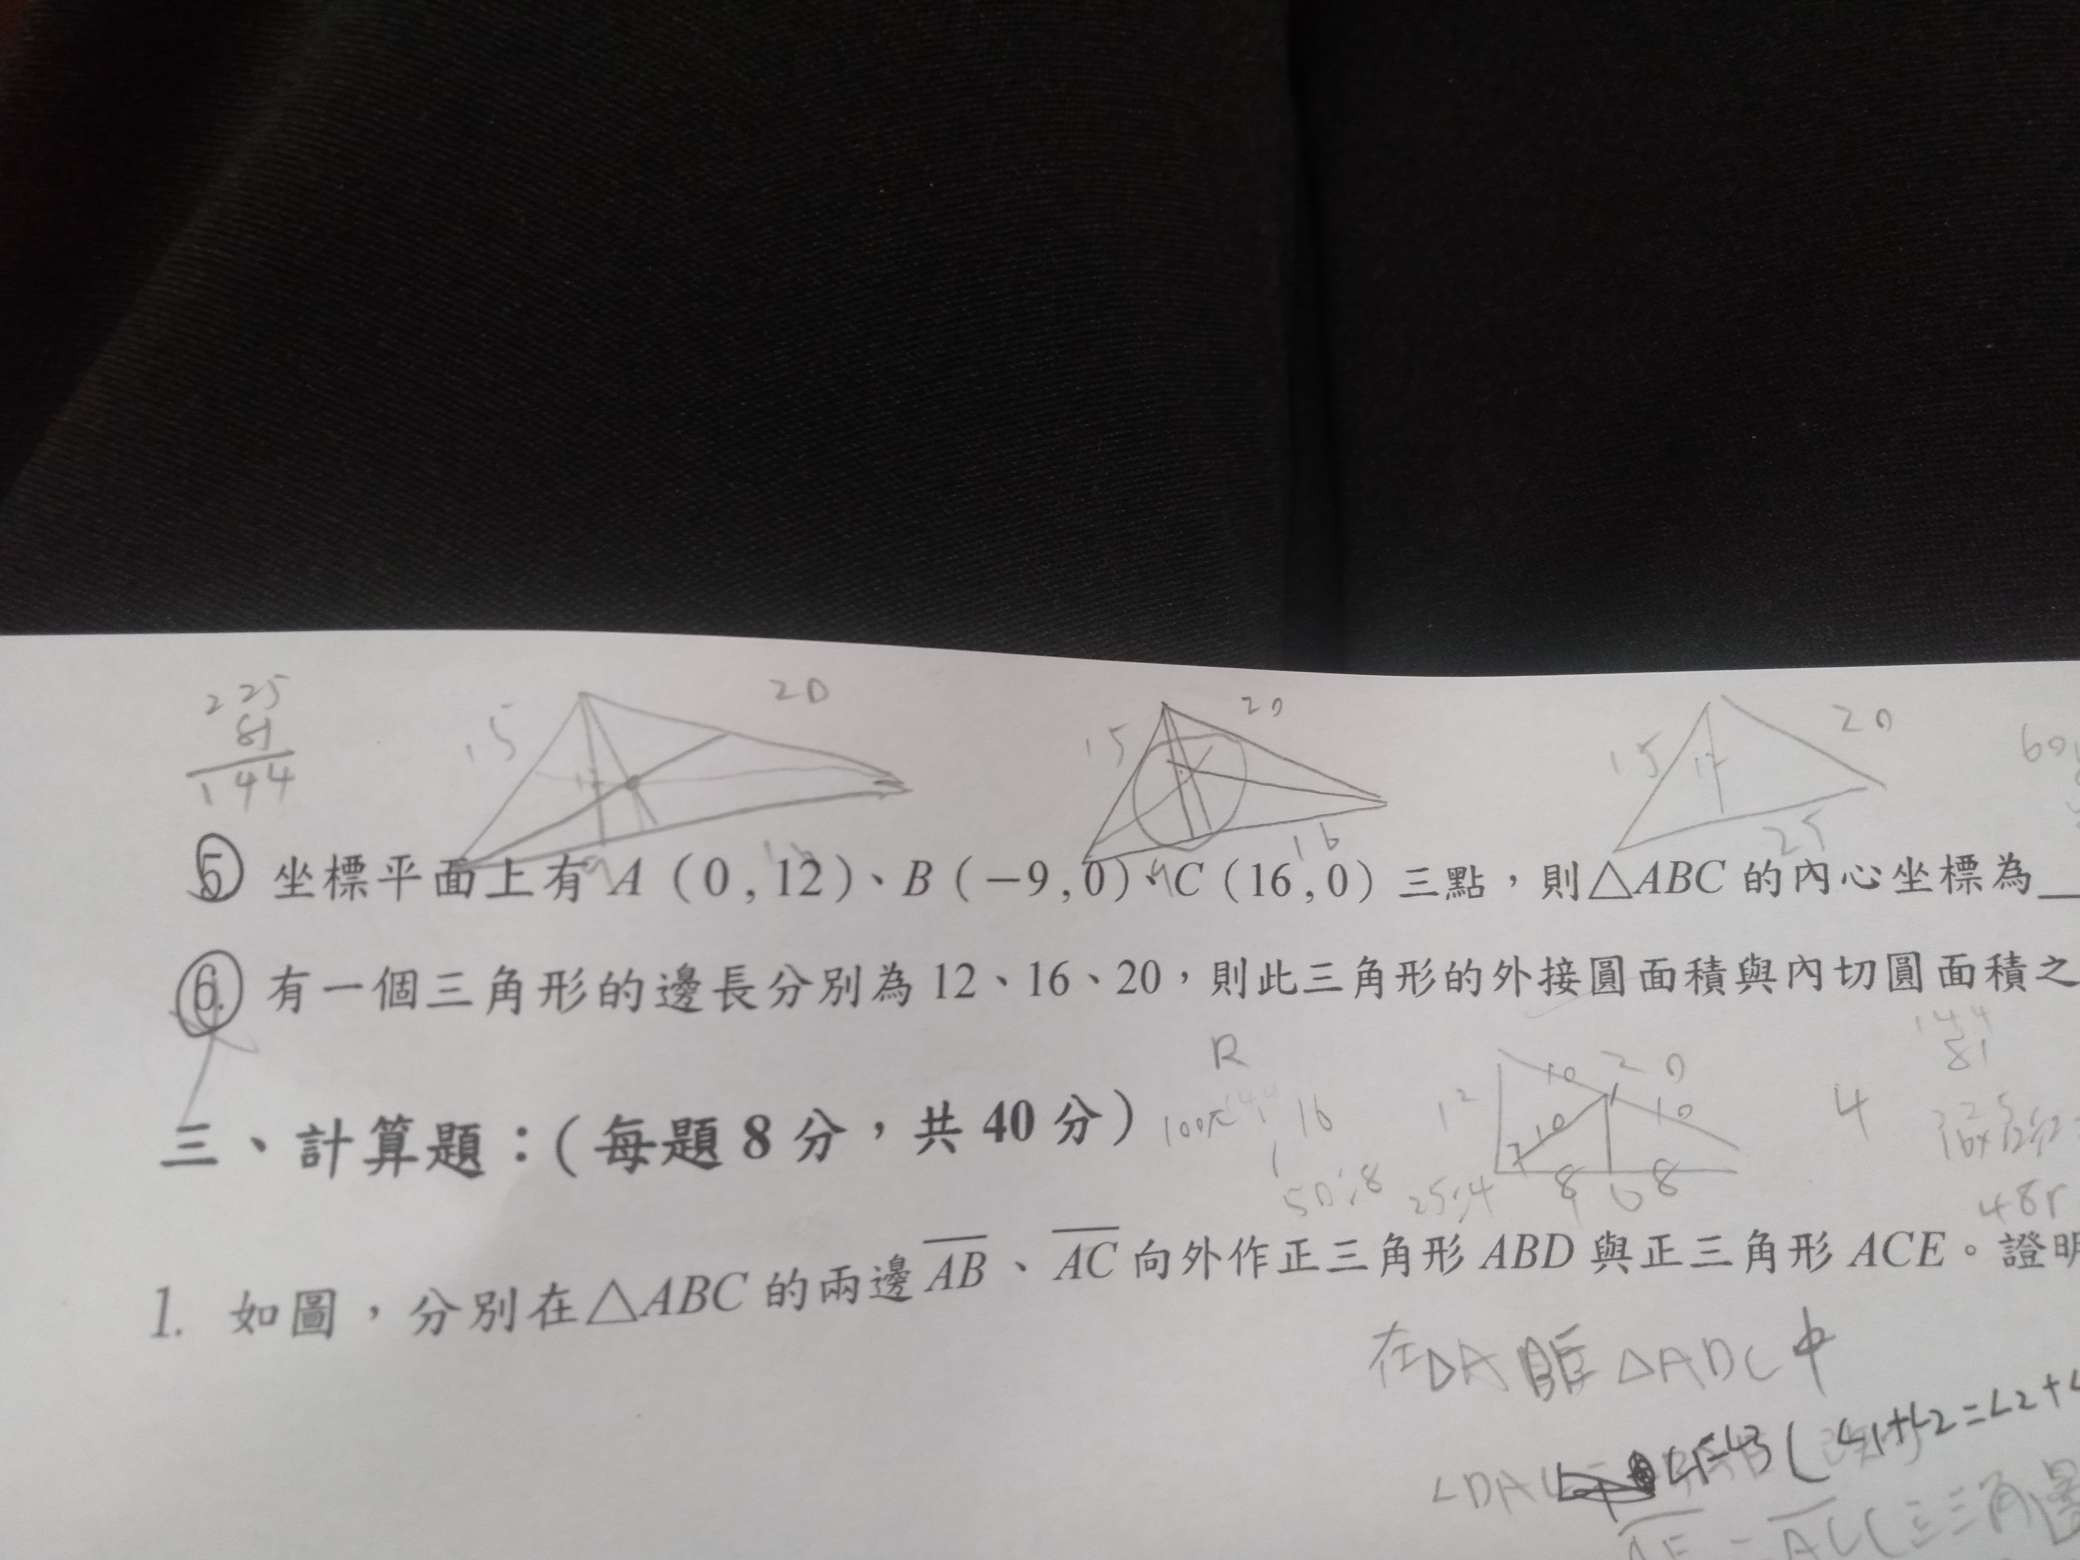 225
81
144
15 20
15 20
15 12 20
25
16
⑤ 坐標平面上有 A（0 , 12）、B（−9 , 0）、C（16 , 0）三點，則△ABC 的內心坐標為
⑥. 有一個三角形的邊長分別為 12、16、20，則此三角形的外接圓面積與內切圓面積之
R
144
81
三、計算題：（每題 8 分，共 40 分）
100π 16
12 10 20 10 10 8 8
4
50:8 25:4
48r
1. 如圖，分別在△ABC 的兩邊 AB、AC 向外作正三角形 ABD 與正三角形 ACE。證明
在△A △ADC中
∠1=∠3 (∠1+∠2=∠2+
= AC (正三角